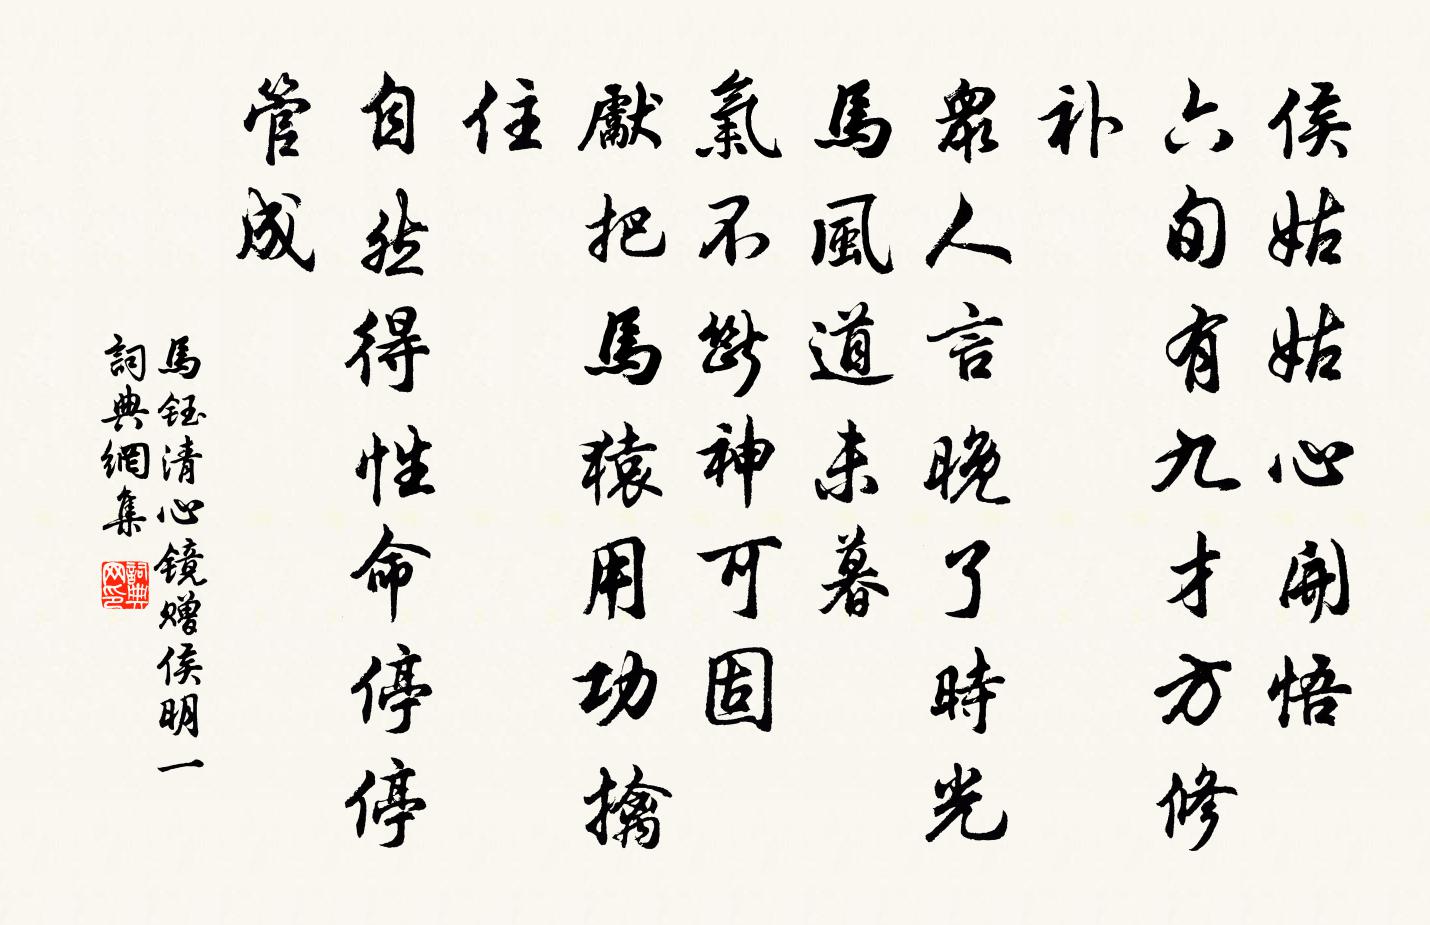 侯姑姑心開悟
六旬有九才方修
补
眾人言晚了時光
馬風道未暮
氣不斷神可固
獻把馬猿用功擒
住
自然得性命停停
管成
馬鈺清心鏡赠侯明一
詞典網集
詞典网印